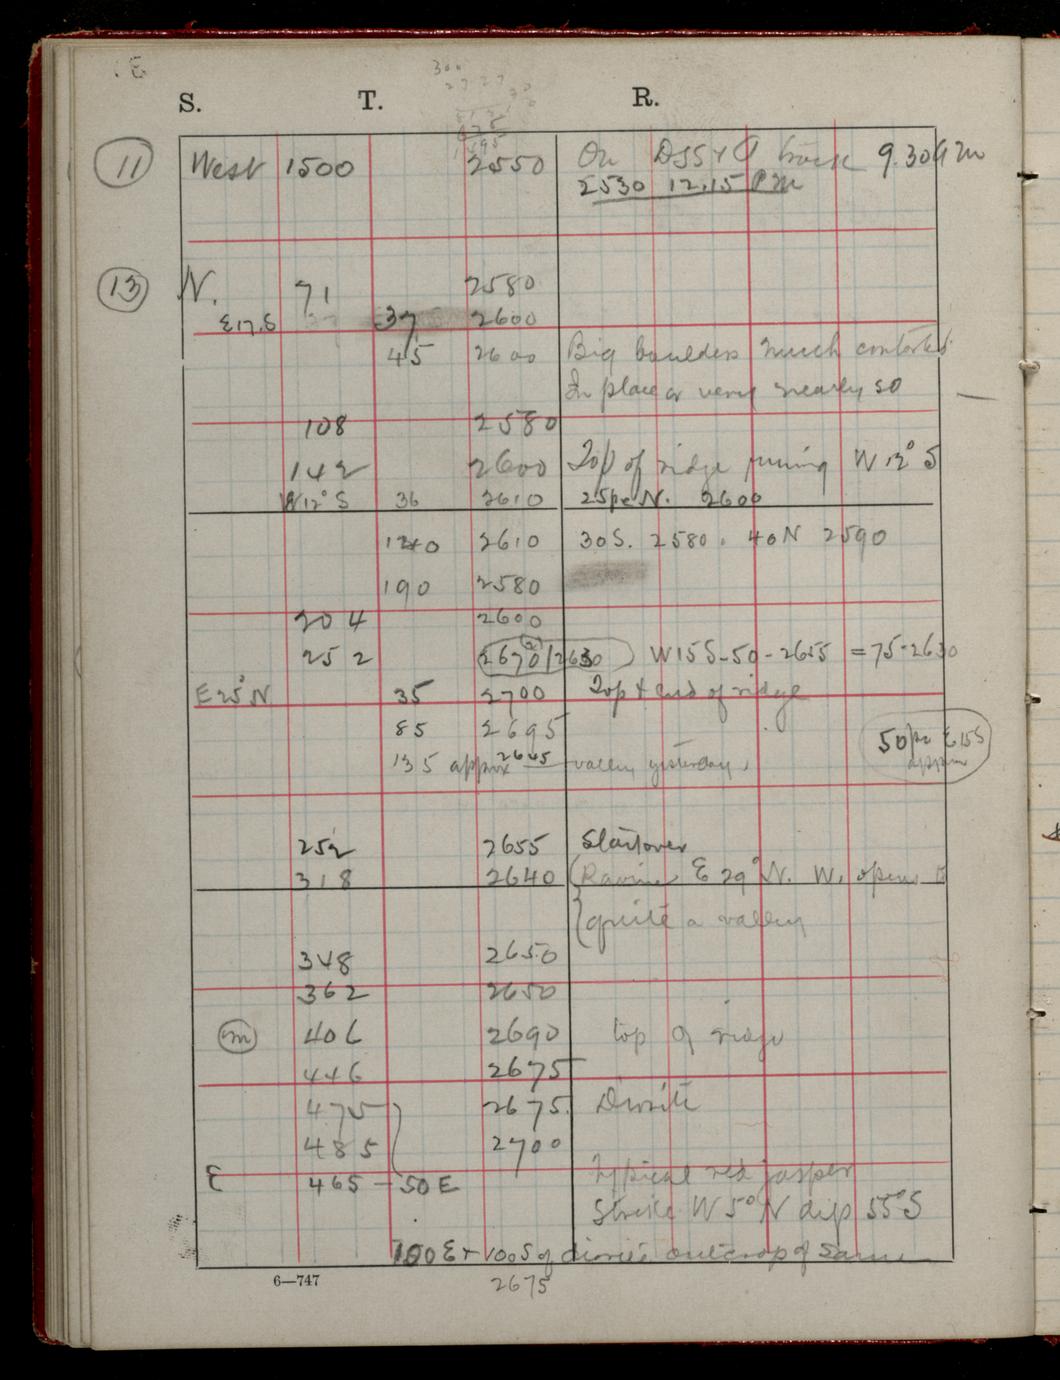 S. T. R.
11 West 1500 2550 On DSS & A track 9.30 A m
2530 12.15 PM
13 N. 71 2580
E 17. S 37 2600
45 2600 Big boulders much contorted
In place or very nearly so
108 2580
142 2600 Top of ridge running W 12° S
W 12° S 36 2610 25 pc N. 2600
140 2610 30 S. 2580. 40 N 2590
190 2580
204 2600
252 2670/2630 W 15 S - 50 - 2655 = 75 - 2630
E 25° N 35 2700 Top & end of ridge
85 2695
50 pc E 15 S
approx
135 approx 2645 valley yesterday.
252 2655 Start over
318 2640 (Ravine E 29° N. W. opens
quite a valley
348 2650
362 2650
m 406 2690 top of ridge
446 2675
475 2675. Diorite
485 2700
E 465 - 50 E Typical red jasper
Strike W 5° N dip 55° S
100 E + 100 S of diorite outcrop of same
6—747
2675